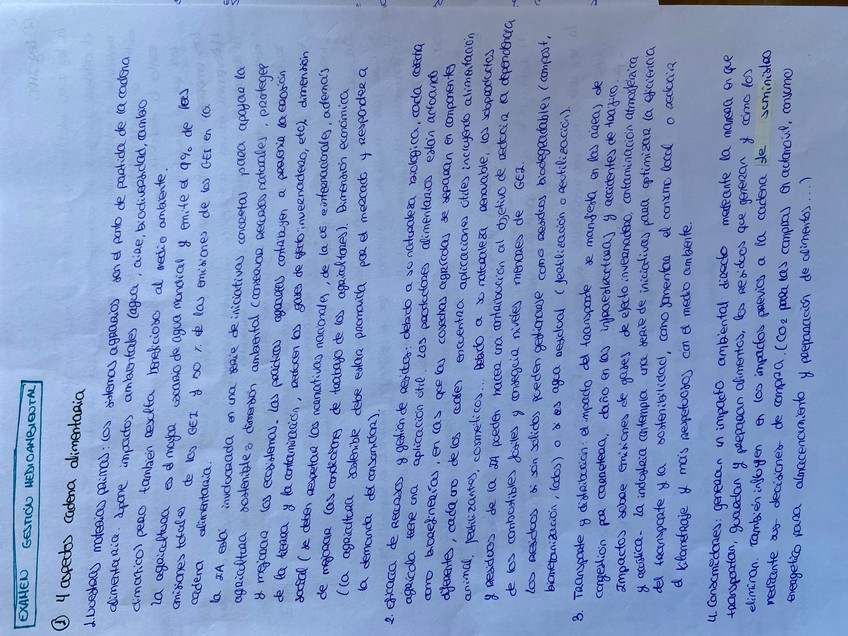 EXAMEN GESTIÓN MEDIOAMBIENTAL
① 4 aspectos cadena alimentaria
1. Nuestras materias primas: los sistemas agrarios son el punto de partida de la cadena
alimentaria. Supone impactos ambientales (agua, aire, biodiversidad, cambio
climático) pero también resulta beneficioso al medio ambiente.
La agricultura es el mayor usuario de agua mundial y emite el 9% de las
emisiones totales de los GEI y 50% de las emisiones de los GEI en la
cadena alimentaria.
la IA está involucrada en una serie de iniciativas concretas para apoyar la
agricultura sostenible: dimensión ambiental (conservar recursos naturales, proteger
y mejorar los ecosistemas. Las prácticas agrarias contribuyen a prevenir la erosión
de la tierra y la contaminación, reducen los gases de efecto invernadero, etc), dimensión
social (se deben respetar las normativas nacionales, de la UE e internacionales, además
de mejorar las condiciones de trabajo de los agricultores). Dimensión económica
(la agricultura sostenible debe estar promovida por el mercado y responder a
la demanda del consumidor).
2. eficacia de recursos y gestión de residuos: debido a su naturaleza biológica, cada cosecha
agrícola tiene una aplicación útil. Los productores alimentarios están actuando
como biorefinerías, en las que las cosechas agrícolas se separan en componentes
diferentes, cada uno de los cuales encuentra aplicaciones útiles incluyendo alimentación
animal, fertilizantes, cosméticos... Debido a su naturaleza renovable, los subproductos
y residuos de la IA pueden hacer una contribución al objetivo de reducir la dependencia
de los combustibles fósiles y conseguir niveles menores de GEI.
Los residuos si son sólidos pueden gestionarse como residuos biodegradables (compost,
biometanización, lodos) o si es agua residual (fertilización o reutilización).
3. Transporte y distribución: el impacto del transporte se manifiesta en las áreas de
congestión por carretera, daño en las infraestructuras y accidentes de tráfico.
Impactos sobre emisiones de gases de efecto invernadero, contaminación atmosférica
y acústica. La industria contempla una serie de iniciativas para optimizar la eficiencia
del transporte y la sostenibilidad, como fomentar el consumo local o reducir
el kilometraje y más respetuosos con el medio ambiente.
4. Consumidores: generan un impacto ambiental directo mediante la manera en que
transportan, guardan y preparan alimentos, los residuos que generan y como los
eliminan. También influyen en los impactos previos a la cadena de suministros
mediante sus decisiones de compra. (CO2 para las compras en automóvil, consumo
energético para almacenamiento y preparación de alimentos...)